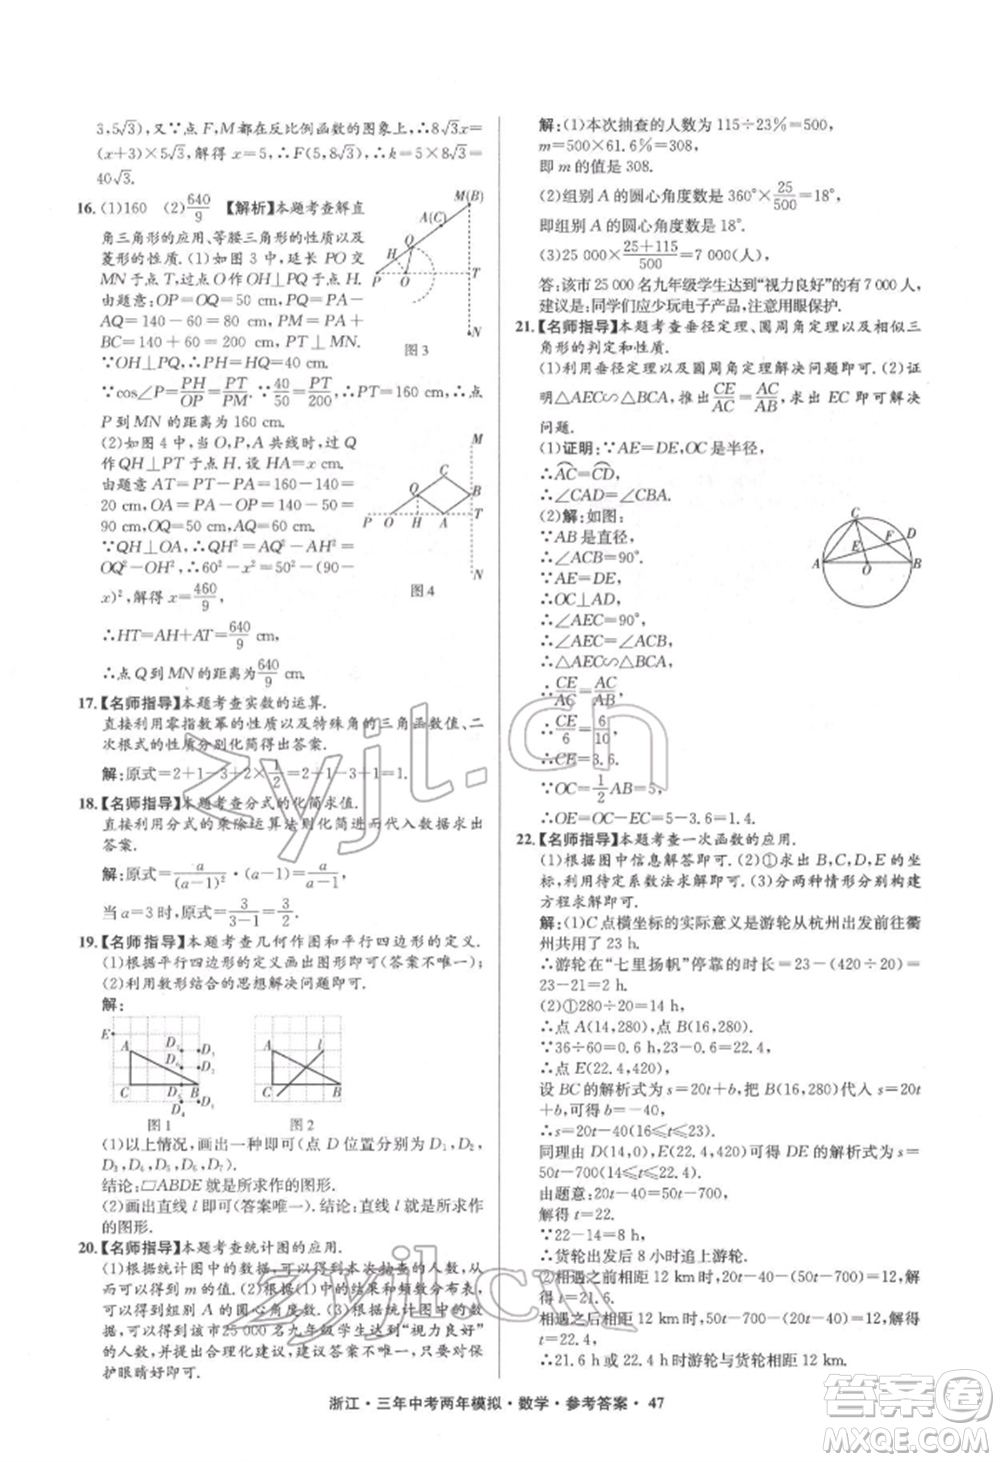 3,5√3), 又∵点 F,M 都在反比例函数的图象上,∴8√3x=
(x+3)×5√3,解得 x=5,∴F(5,8√3),∴k=5×8√3=
40√3.
16. (1)160 (2)640/9 【解析】本题考查解直
角三角形的应用、等腰三角形的性质以及
菱形的性质. (1)如图 3,延长 PO 交
MN 于点 T,过点 O 作 OH⊥PQ 于点 H.
由题意,OP=OQ=50 cm,PQ=PA-
AQ=140-60=80(cm),PM=PA+
BC=140+60=200 cm,PT⊥MN.
∵OH⊥PQ,∴PH=HQ=40 cm.
∵cos∠P=PH/OP=PT/PM,∴40/50=PT/200,∴PT=160 cm,∴点
P 到 MN 的距离为 160 cm.
(2)如图 4 中,当 O,P,A 共线时,过 Q
作 QH⊥PT 于 H.设 HA=x cm.
由题意 AT=PT-PA=160-140=
20(cm),OA=PA-OP=140-50=
90(cm),OQ=50 cm,AQ=60 cm.
∵QH⊥OA,∴QH²=AQ²-HA²=
OQ²-OH²,∴60²-x²=50²-(90-
x)²,解得 x=460/9,
∴HT=AH+AT=640/9 cm,
∴点 Q 到 MN 的距离为640/9 cm.
M(B)
A(C)
Q
H
P
O
T
N
图 3
M
C
Q
B
P
O
H
A
T
N
图 4
17.【名师指导】本题考查实数的运算.
直接利用零指数幂的性质以及特殊角的三角函数值、二
次根式的性质分别化简得出答案.
解:原式=2+1-3+2×1/2=2+1-3+1=1.
18.【名师指导】本题考查分式的化简求值.
直接利用分式的乘除运算法则化简进而代入数据求出
答案.
解:原式=a/(a-1)²·(a-1)=a/(a-1).
当 a=3 时,原式=3/(3-1)=3/2.
19.【名师指导】本题考查几何作图和平行四边形的定义.
(1)根据平行四边形的定义画出图形即可(答案不唯一);
(2)利用数形结合的思想解决问题即可.
解:
E
A
C
B
图 1
A
l
C
B
图 2
(1)以上情况,画出一种即可(点 D 位置分别为 D₁,D₂,D₃,D₄,D₅).
结论:▱ABDE 就是所求作的图形.
(2)画出直线 l 即可(答案唯一).结论:直线 l 就是所求作
的图形.
20.【名师指导】本题考查统计图的应用.
(1)根据统计图中的数据,可以求得本次抽查的人数和表
中的 m 的值;(2)根据统计图中的结果和频数分布表,可
以得到组别 A 的圆心角度数;(3)根据统计图中的数据,可
以得到该市 25 000 名九年级学生达到“视力良好”的
的人数,并提出合理化建议,建议答案不唯一,只要是保
护眼睛好即可.
解:(1)本次抽查的人数为 115÷23%=500,
m=500×61.6%=308,
即 m 的值是 308.
(2)组别 A 的圆心角度数是 360°×25/500=18°,
即组别 A 的圆心角度数是 18°.
(3)25 000×(25+115)/500=7 000(人),
答:该市 25 000 名九年级学生达到“视力良好”的有 7 000 人,
建议是:同学们应少玩电子产品,注意用眼保护.
21.【名师指导】本题考查垂径定理、圆周角定理以及相似三
角形的判定和性质.
(1)利用垂径定理以及圆周角定理解决问题即可.(2)证
明△AEC∽△BCA,推出CE/AC=AC/AB,求出 EC 即可解决
问题.
(1)证明:∵AE=DE,OC 是半径,
∴AC=CD,
∴∠CAD=∠CBA.
(2)解:如图:
∵AB 是直径,
∴∠ACB=90°.
∵AE=DE,
∴OC⊥AD,
∴∠AEC=90°,
∴∠AEC=∠ACB,
∴△AEC∽△BCA,
∴CE/AC=AC/AB,
∴CE/6=6/10,
∴CE=3.6.
∵OC=1/2AB=5,
∴OE=OC-EC=5-3.6=1.4.
C
D
F
E
A
O
B
22.【名师指导】本题考查一次函数的应用.
(1)根据图中信息解答即可.(2)①求出 B,C,D,E 的坐
标,利用待定系数法求解即可.(3)分两种情形分别构建
方程求解即可.
解:(1)C 点横坐标的实际意义是游轮从杭州出发前往衢
州共用了 23 h.
∴游轮在“七里扬帆”停靠的时长=23-(420÷20)=
23-21=2 h.
(2)①280÷20=14 h,
∴点 A(14,280),点 B(16,280),
∵36÷60=0.6 h,23-0.6=22.4,
∴点 E(22.4,420),
设 BC 的解析式为 s=20t+b,把 B(16,280)代入 s=20t
+b,可得 b=-40,
∴s=20t-40(16≤t≤23),
同理由 D(14,0),E(22.4,420)可得 DE 的解析式为 s=
50t-700(14≤t≤22.4),
由题意:20t-40=50t-700,
解得 t=22.
∵22-14=8 h,
∴货轮出发后 8 小时追上游轮.
②相遇之前相距 12 km时,20t-40-(50t-700)=12,解
得 t=21.6.
相遇之后相距 12 km时,50t-700-(20t-40)=12,解得
t=22.4,
∴21.6 h 或 22.4 h 时游轮与货轮相距 12 km.
浙江·三年中考两年模拟·数学·参考答案· 47
zyjl.cn
zyjl.cn
答案圈
MXQE.COM